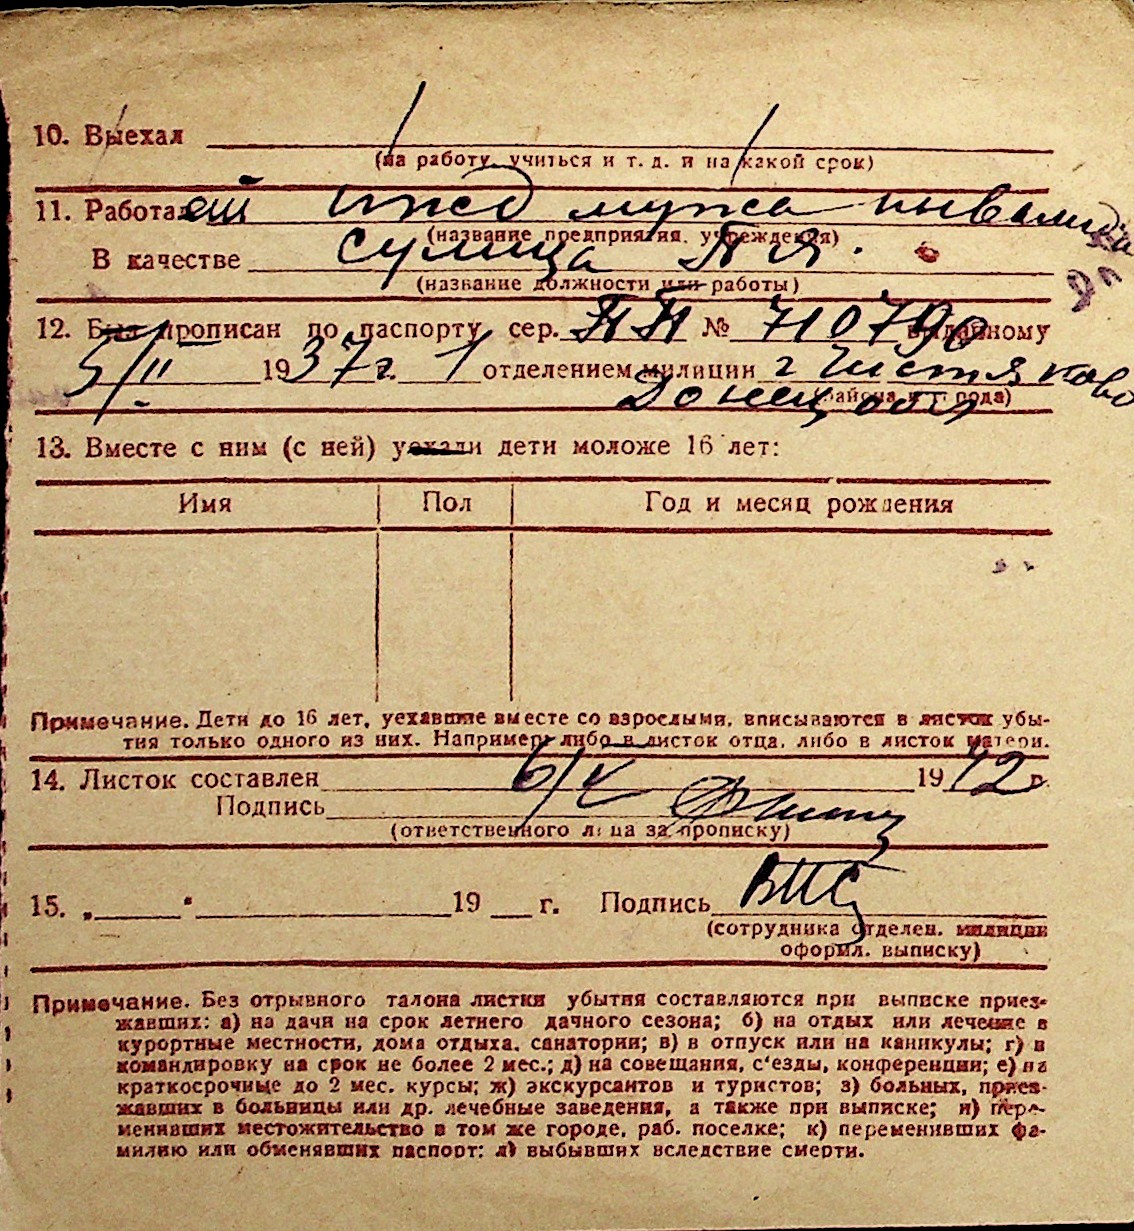 10. Выехал
(на работу, учиться и т. д. и на какой срок)
11. Работал ижд мужа инвалида
(название предприятия, учреждения)
В качестве Сулица П Я.
(название должности или работы)
12. Был прописан по паспорту сер. № 710790 выданному
5/II 1937г. 1 отделением милиции г Чистяково
(района и г рода)
Донец обл
13. Вместе с ним (с ней) уехали дети моложе 16 лет:
Имя Пол Год и месяц рождения
Примечание. Дети до 16 лет, уехавшие вместе со взрослыми, вписываются в листок убы-
тия только одного из них. Например: либо в листок отца, либо в листок матери.
14. Листок составлен 6/X 1942 г.
Подпись
(ответственного лица за прописку)
15. „ " 19 г. Подпись
(сотрудника отделен. милиции
оформл. выписку)
Примечание. Без отрывного талона листки убытия составляются при выписке приез-
жавших: а) на дачи на срок летнего дачного сезона; б) на отдых или лечение в
курортные местности, дома отдыха, санатории; в) в отпуск или на каникулы; г) в
командировку на срок не более 2 мес.; д) на совещания, с'езды, конференции; е) на
краткосрочные до 2 мес. курсы; ж) экскурсантов и туристов; з) больных, приез-
жавших в больницы или др. лечебные заведения, а также при выписке; и) пере-
менивших местожительство в том же городе, раб. поселке; к) переменивших фа-
милию или обменявших паспорт; л) выбывших вследствие смерти.